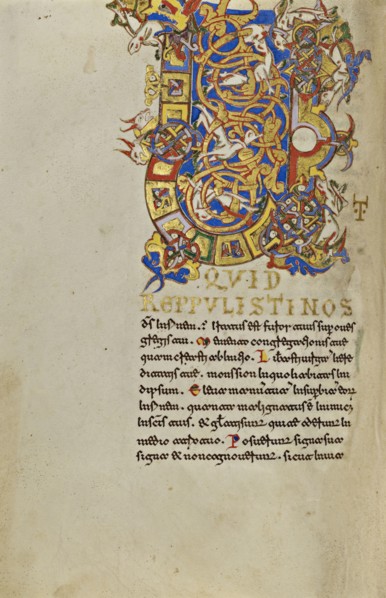 U
T
QVID
REPPVLISTI NOS
ds in finem. Iratus est furor tuus sup oues
gregis tui. Memento congregationis tue
quam creasti ab initio. Liberasti uirgā here
ditatis tue. mons sion in quo habitasti in
idipsum. Eleua manū tuā in superbia eorū
in finem. quanta malignatus ē inimic
in scis tuis. & gliati sunt qui te oderunt in
medio atrio tuo. Posuerunt signa sua
signa & non cognouerunt. sicut in uia